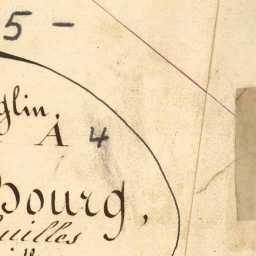 5 -
glin,
A 4
bourg,
uilles